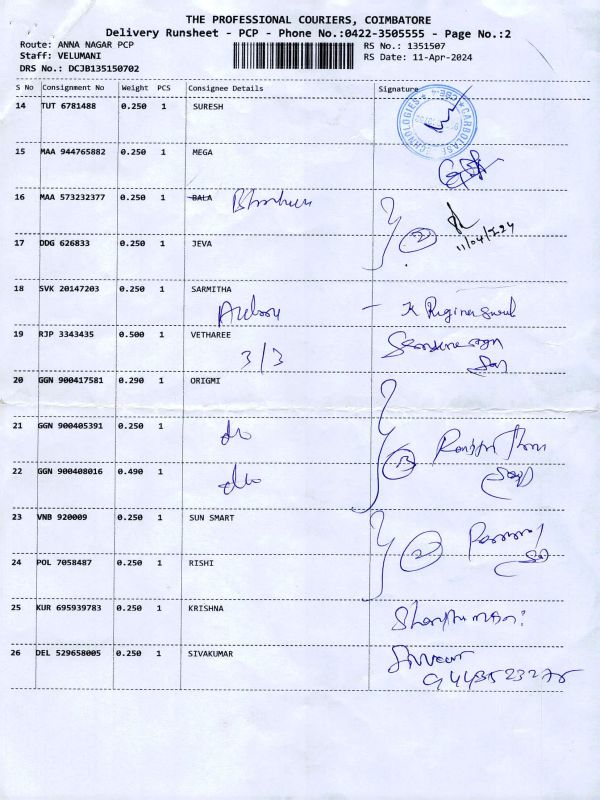 THE PROFESSIONAL COURIERS, COIMBATORE
Delivery Runsheet - PCP - Phone No.:0422-3505555 - Page No.:2
Route: ANNA NAGAR PCP
RS No.: 1351507
Staff: VELUMANI
RS Date: 11-Apr-2024
DRS No.: DCJB135150702
S No Consignment No Weight PCS Consignee Details Signature
14 TUT 6781488 0.250 1 SURESH
15 MAA 944765882 0.250 1 MEGA
16 MAA 573232377 0.250 1 BALA
2
11/04/2024
17 DDG 626833 0.250 1 JEVA
18 SVK 20147203 0.250 1 SARMITHA
19 RJP 3343435 0.500 1 VETHAREE
3/3
20 GGN 900417581 0.290 1 ORIGMI
21 GGN 900405391 0.250 1
do
22 GGN 900408016 0.490 1
do
3
23 VNB 920009 0.250 1 SUN SMART
2
24 POL 7058487 0.250 1 RISHI
25 KUR 695939783 0.250 1 KRISHNA
26 DEL 529658005 0.250 1 SIVAKUMAR